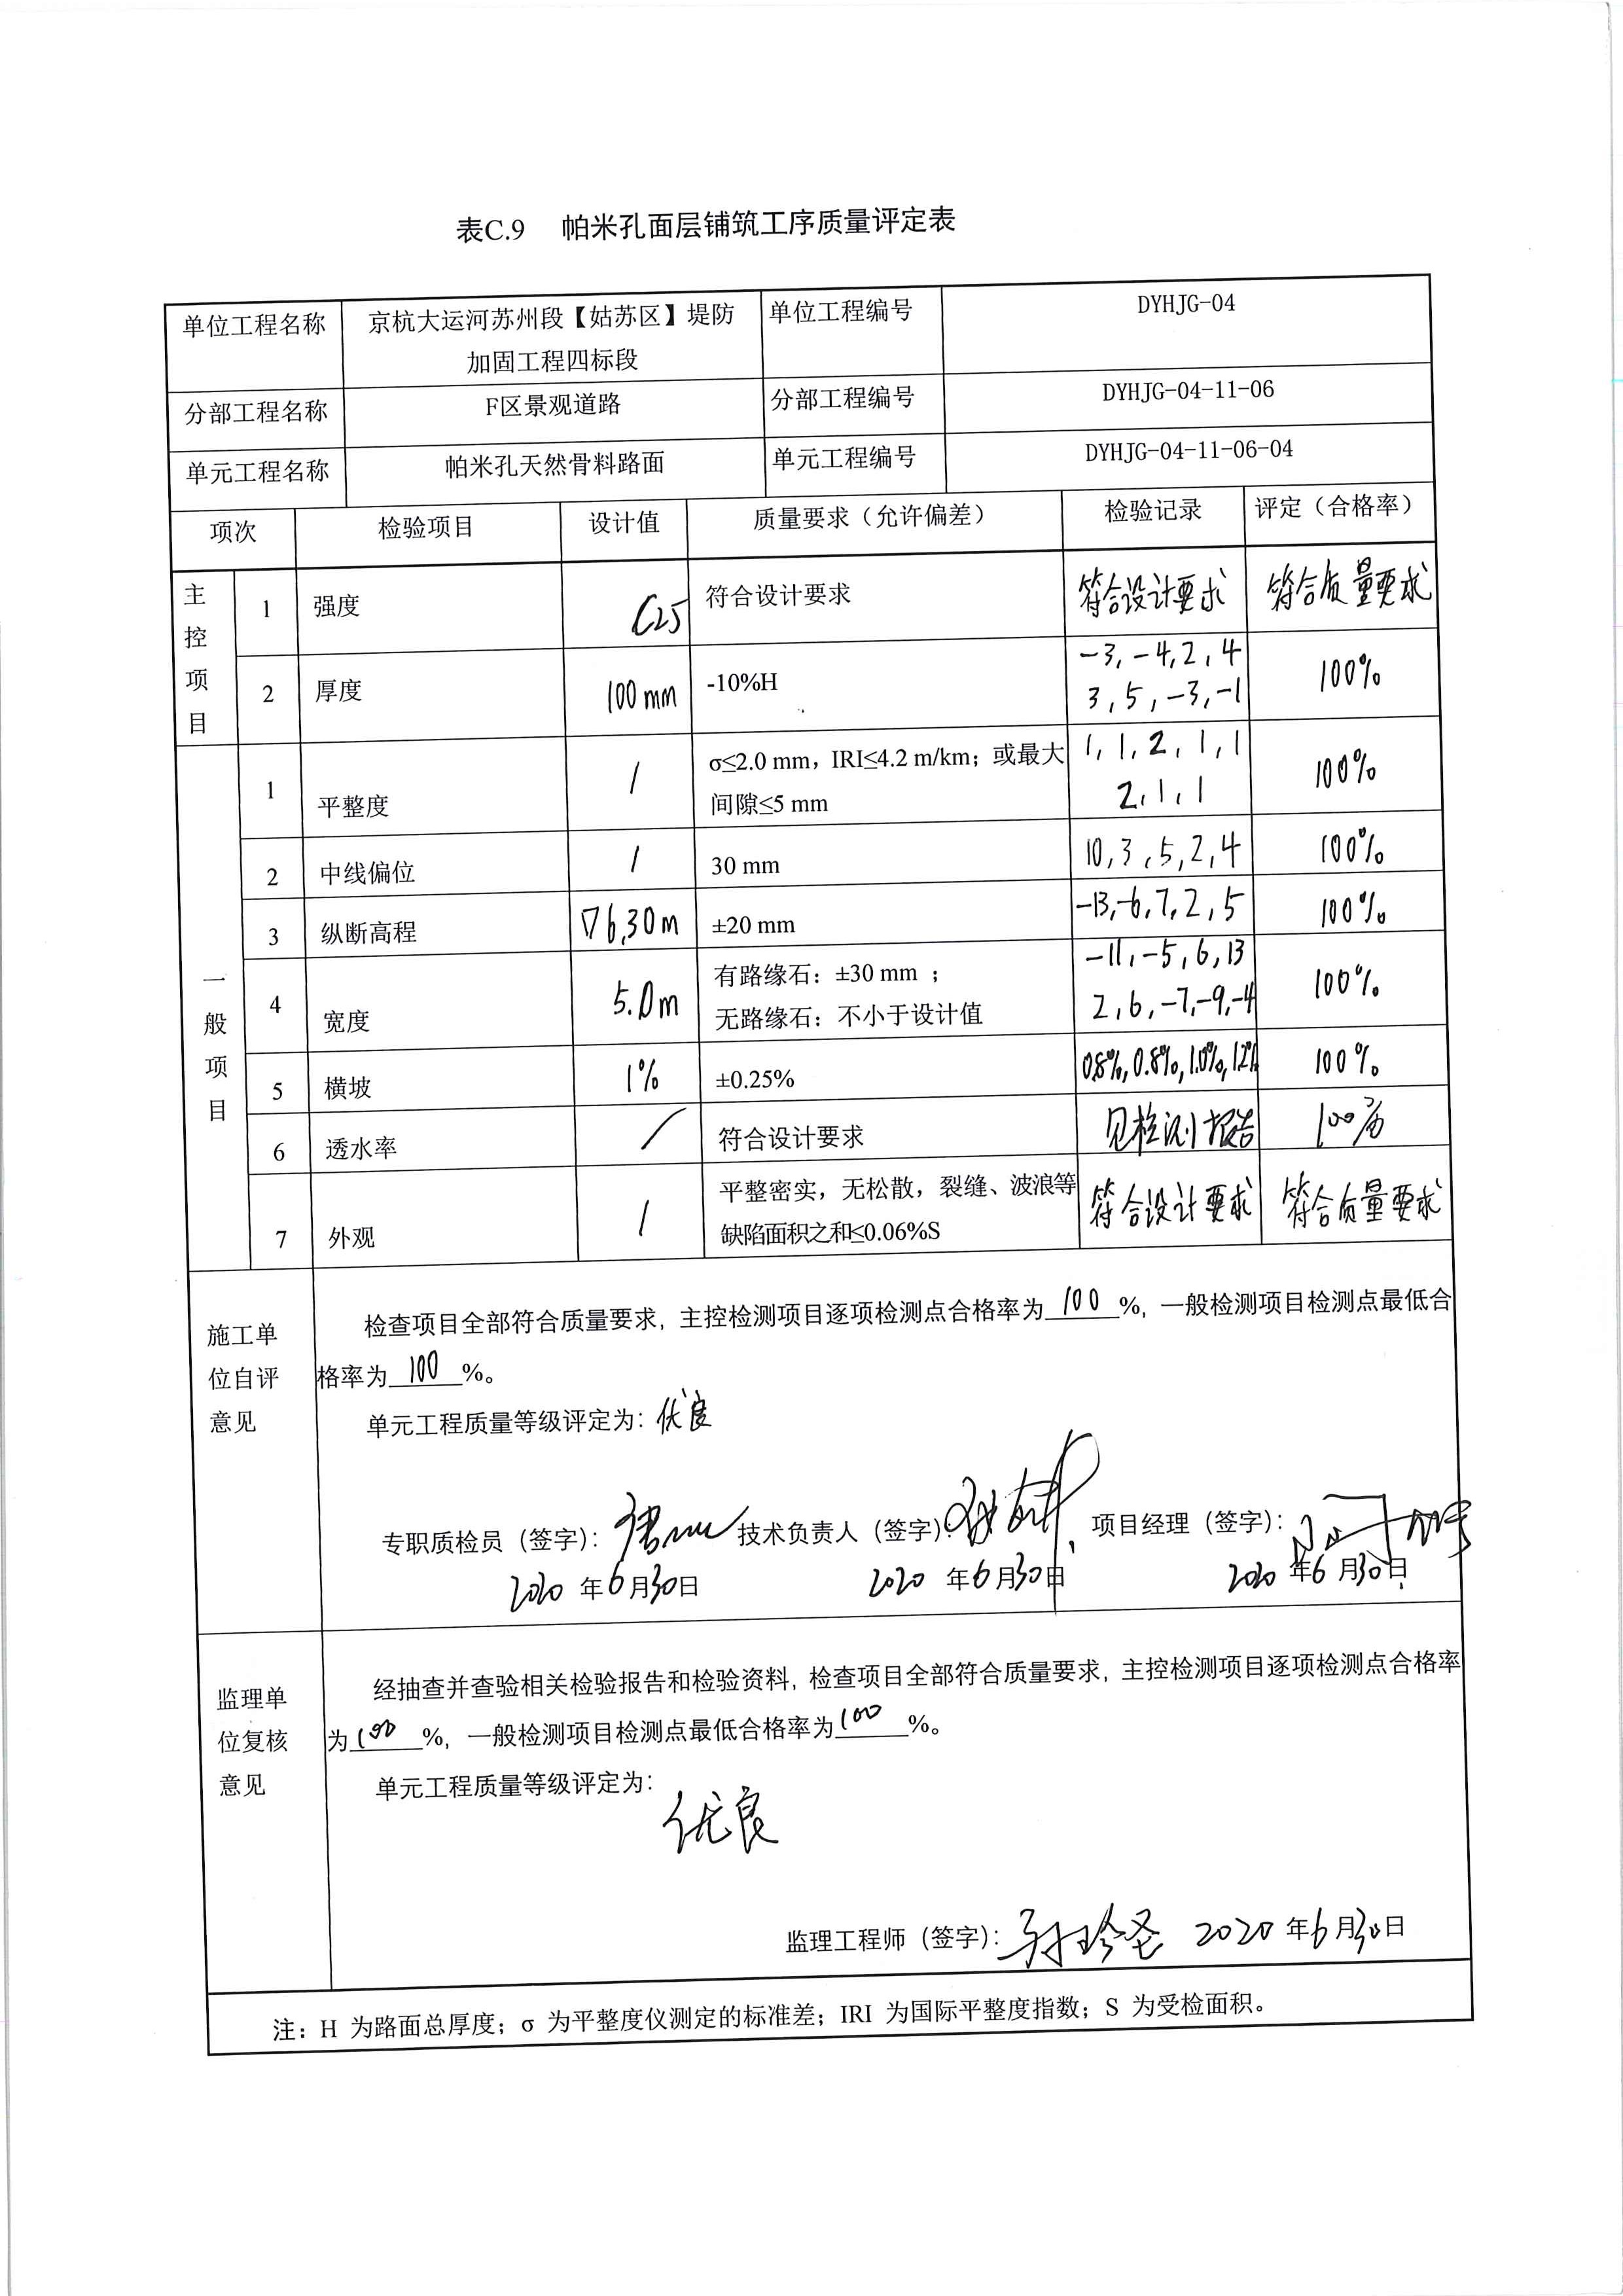 表C.9 帕米孔面层铺筑工序质量评定表
单位工程名称 京杭大运河苏州段【姑苏区】堤防 单位工程编号 DYHJG-04
加固工程四标段
分部工程名称 F区景观道路 分部工程编号 DYHJG-04-11-06
单元工程名称 帕米孔天然骨料路面 单元工程编号 DYHJG-04-11-06-04
项次 检验项目 设计值 质量要求（允许偏差） 检验记录 评定（合格率）
主控项目
1 强度 C25 符合设计要求 符合设计要求 符合质量要求
2 厚度 100mm -10%H -3, -4, 2, 4 100%
3, 5, -3, -1
一般项目
1 平整度 / σ≤2.0 mm，IRI≤4.2 m/km；或最大 1, 1, 2, 1, 1 100%
间隙≤5 mm 2, 1, 1
2 中线偏位 / 30 mm 10, 3, 5, 2, 4 100%
3 纵断高程 ▽6.30m ±20 mm -13, -6, 7, 2, 5 100%
4 宽度 5.0m 有路缘石：±30 mm ； -11, -5, 6, 13 100%
无路缘石：不小于设计值 2, 6, -7, -9, -4
5 横坡 1% ±0.25% 0.8%, 0.8%, 1.0%, 1.2% 100%
6 透水率 / 符合设计要求 见检测报告 100%
7 外观 / 平整密实，无松散，裂缝、波浪等 符合设计要求 符合质量要求
缺陷面积之和≤0.06%S
施工单
位自评
意见
检查项目全部符合质量要求，主控检测项目逐项检测点合格率为 100 %，一般检测项目检测点最低合
格率为 100 %。
单元工程质量等级评定为：优良
专职质检员（签字）： 技术负责人（签字）： 项目经理（签字）：
2020 年 6 月 30 日 2020 年 6 月 30 日 2020 年 6 月 30 日
监理单
位复核
意见
经抽查并查验相关检验报告和检验资料，检查项目全部符合质量要求，主控检测项目逐项检测点合格率
为 100 %，一般检测项目检测点最低合格率为 100 %。
单元工程质量等级评定为：
优良
监理工程师（签字）： 2020 年 6 月 30 日
注：H 为路面总厚度；σ 为平整度仪测定的标准差；IRI 为国际平整度指数；S 为受检面积。